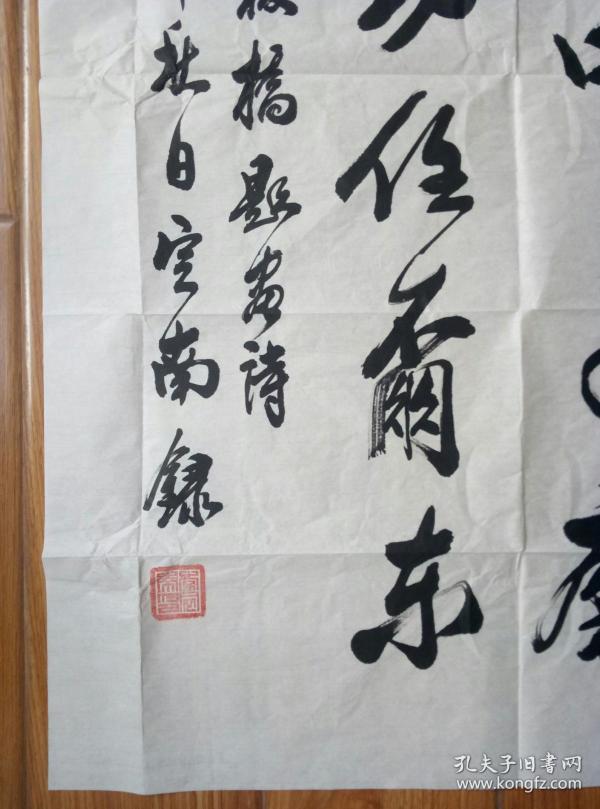 磨
劲任尔东
板桥题画诗
年秋日定南录
孔夫子旧书网
www.kongfz.com